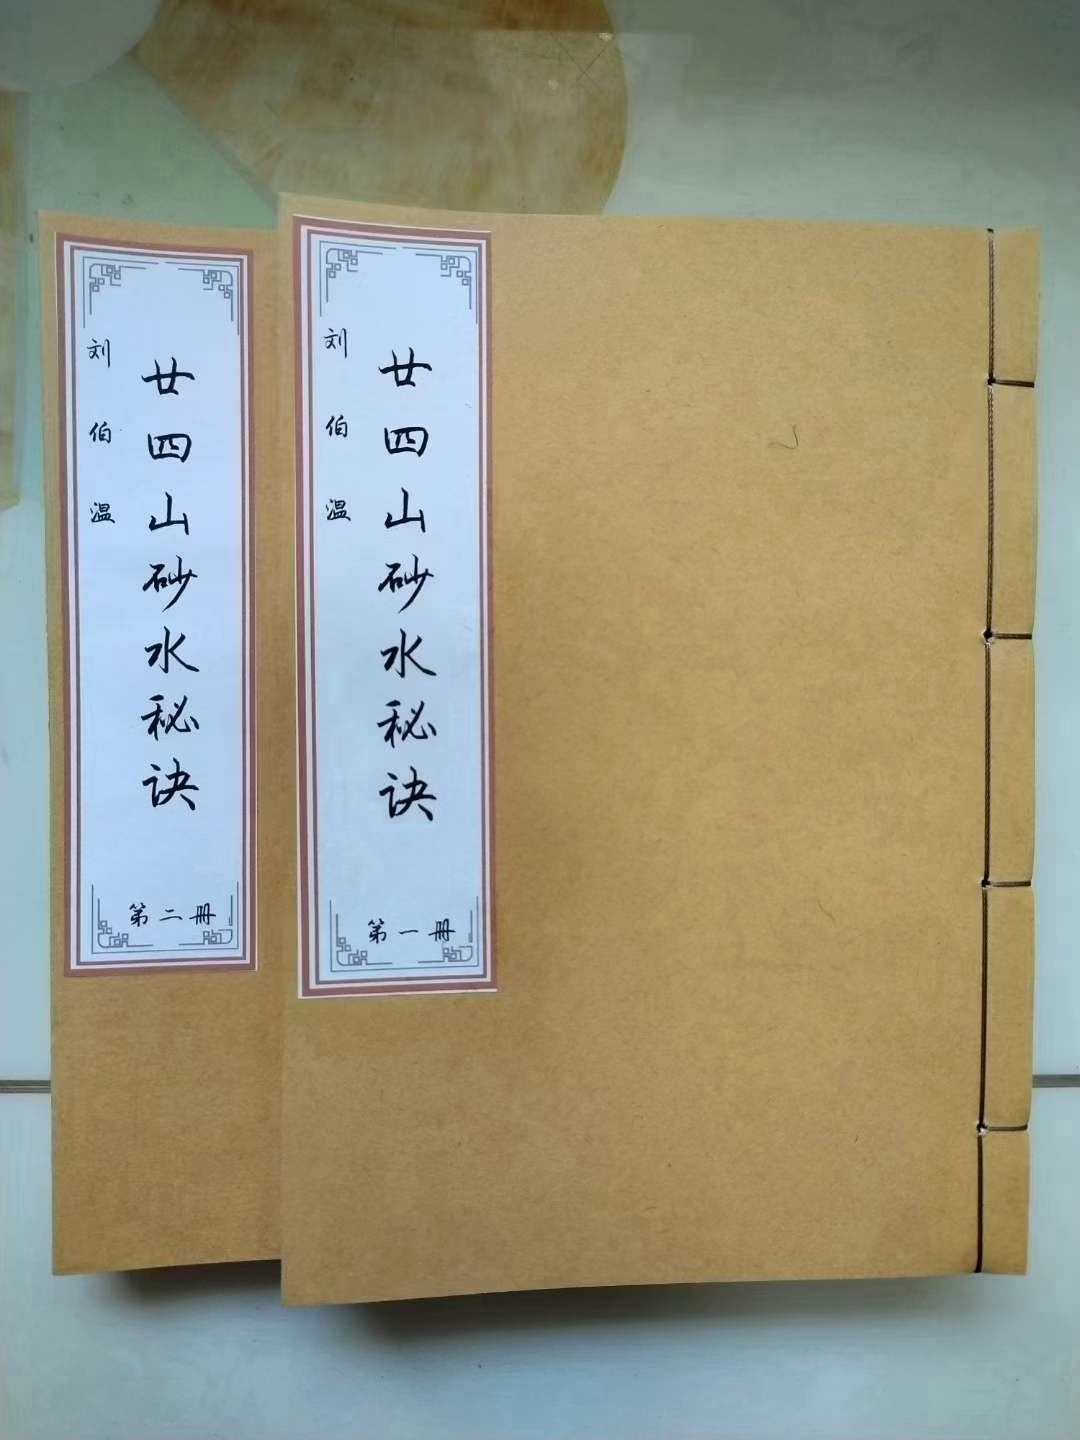 刘伯温
廿四山砂水秘诀
第二册
刘伯温
廿四山砂水秘诀
第一册